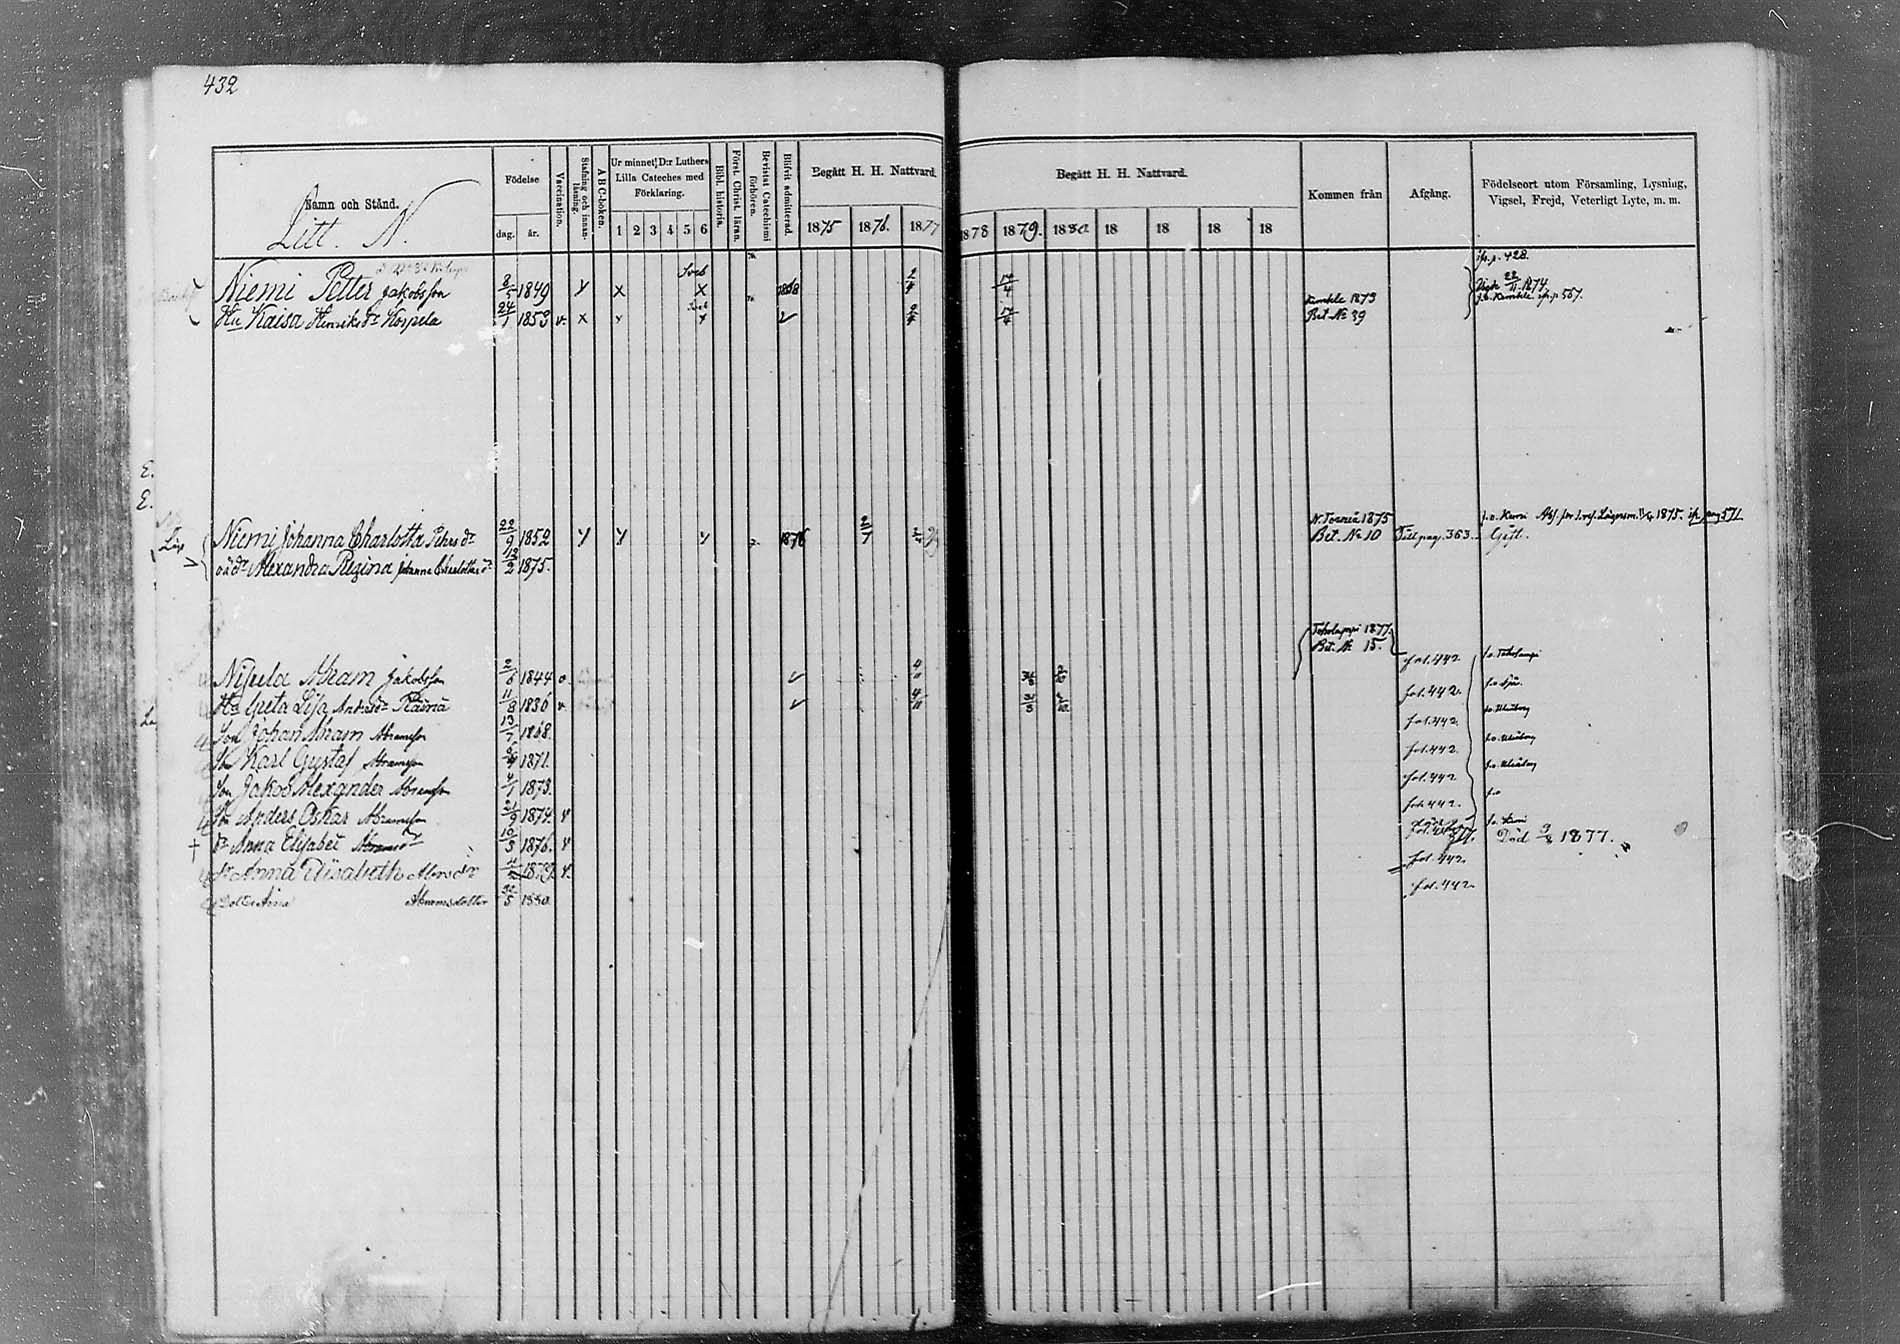 432
Namn och Stånd.
Litt. N.
Födelse
dag. år.
Vaccination.
Stafning och innanläsning.
A B C-boken.
Ur minnet: D:r Luthers Lilla Cateches med Förklaring.
1 2 3 4 5 6
Bibl. historia.
Först. Christ. läran.
Bevistat Catechismi förhören.
Blifvit admitterad.
Begått H. H. Nattvard.
1875 1876. 1877
Begått H. H. Nattvard.
1878 1879. 1880 18 18 18 18
Kommen från
Afgång.
Födelseort utom Församling, Lysning, Vigsel, Frejd, Veterligt Lyte, m. m.
ifr. p. 428.
Niemi Petter Jakobsson 8/5 1849 1868 2/4 14/4 Vigde 22/11 1874.
Kemele 1873
Hu Kaisa Henriksdr Kospela 24/1 1853 v. Bet. No 39
E.
E.
N. Torneå 1875
Niemi Johanna Charlotta Pehrsdr 22/9 1852 Bet. No 10 Till pag. 363. Gift.
o ä dr Alexandra Regina Johanna Charlottas dr 13/2 1875.
Toholampi 1877.
Bet. No 15.
Nisula Abram Jakobsson 2/6 1844 fol. 442 f. o. Toholampi
Hu Greta Lisa Andersdr Rainia 11/8 1836 v. fol. 442.
Son Johan Abram Abramsson 13/7 1868. fol. 442. f. o. Uleåborg
Son Karl Gustaf Abramsson 1871. fol. 442. f. o. Uleåborg
Son Jakob Alexander Abramsson 4/1 1873. fol. 442 f. o. Uleåborg
Son Anders Oskar Abramsson 21/9 1874. v fol. 442. f. o.
† dr Anna Elisabet Abramsdr 10/3 1876. v f. o. Kemi Död 3/8 1877.
dr Anna Elisabeth Abrsdr 1879. v. fol. 442.
Dotter Anna Abramsdotter 30/5 1880. fol. 442.